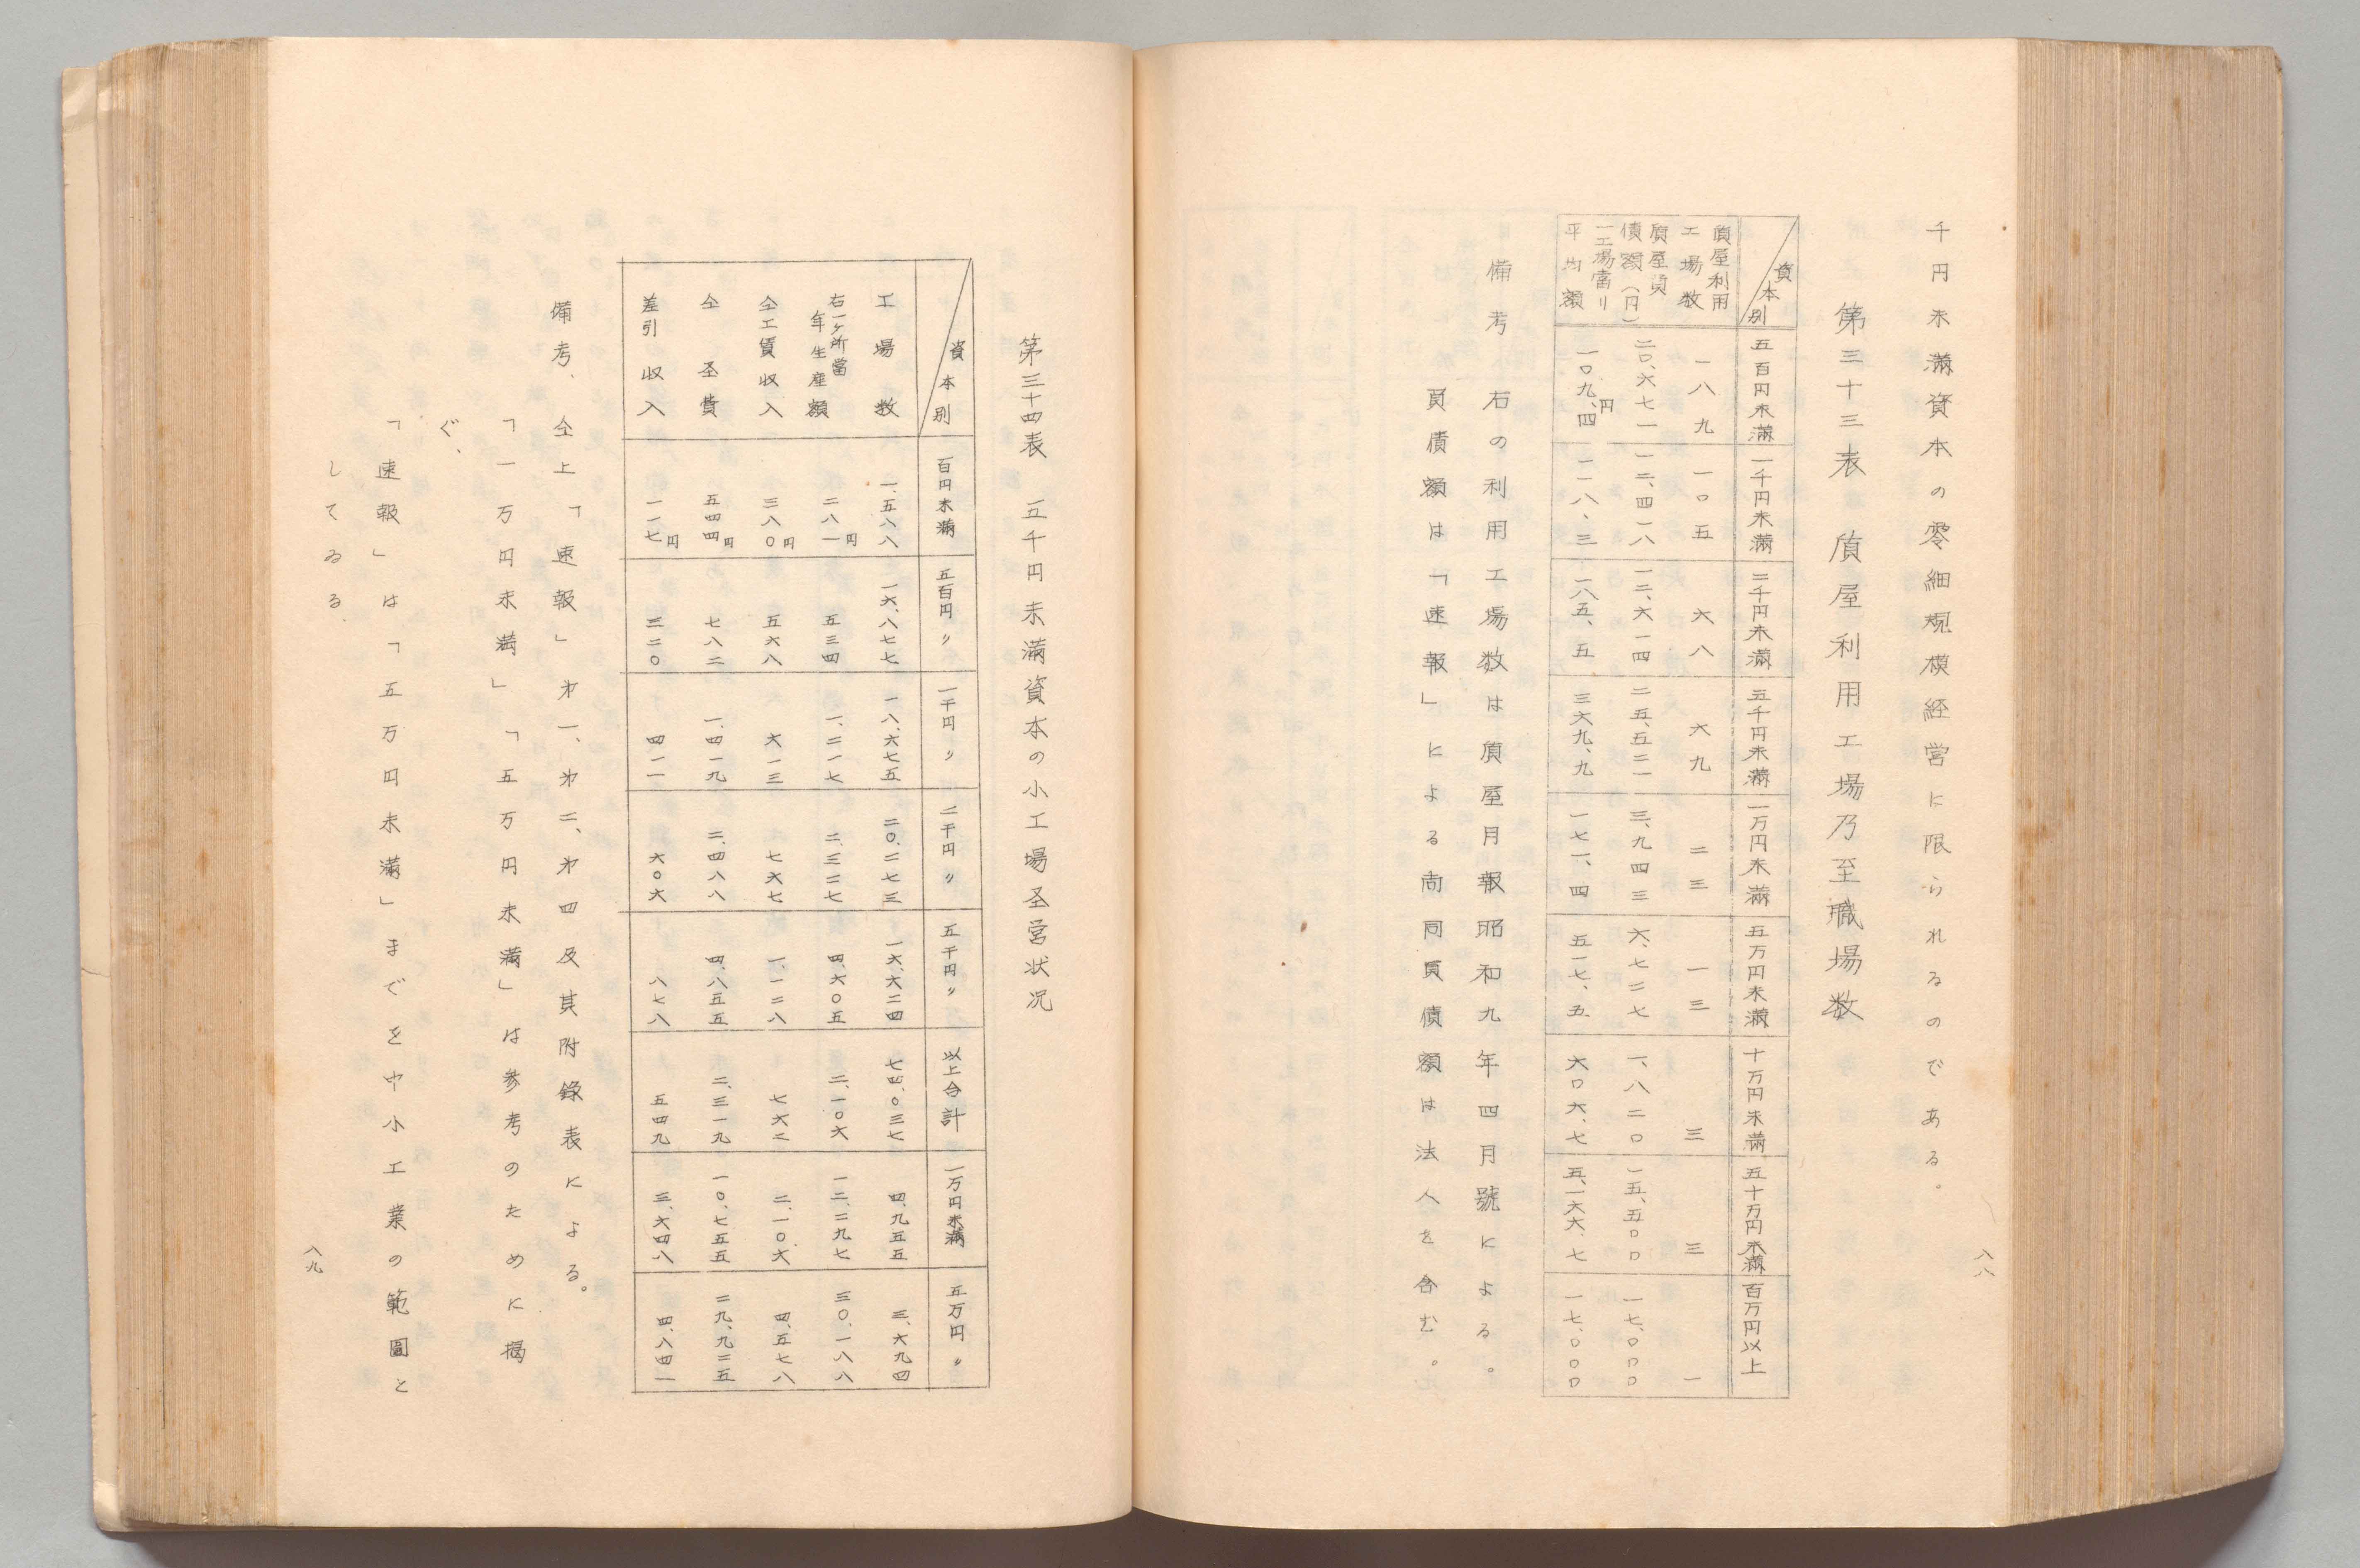 千円未滿資本の零細規模経営に限られるのである。
八八
第三十三表　質屋利用工場乃至職場数
資本別
五百円未滿
一千円未滿
二千円未滿
五千円未滿
一万円未滿
五万円未滿
十万円未滿
五十万円未滿
百万円以上
質屋利用工場数
一八九
一〇五
六八
六九
二三
一三
三
三
一
質屋負債額（円）
二〇、六七一
一二、四一八
一二、六一四
二五、五二一
三、九四三
六、七二七
一、八二〇
一五、五〇〇
一七、〇〇〇
一工場當り平均額
一〇九、四円
一一八、三
一八五、五
三六九、九
一七一、四
五一七、五
六〇六、七
五、一六六、七
一七、〇〇〇
備考　右の利用工場数は質屋月報昭和九年四月號による。
負債額は「速報」による尚同負債額は法人を含む。
第三十四表　五千円未滿資本の小工場圣営状况
資本別
百円未滿
五百円〃
一千円〃
二千円〃
五千円〃
以上合計
一万円未滿
五万円〃
工場数
一、五八八
一六、八七七
一八、六七五
二〇、二七三
一六、六二四
七四、〇三七
四、九五五
三、六九四
右一ヶ所當年生産額
二八一円
五三四
一、二一七
二、三二七
四、六〇五
二、一〇六
一二、二九七
三〇、一八八
仝工賃収入
三八〇円
五六八
六一三
七六七
一、一二八
七六二
二、一〇六
四、五七八
仝圣費
五四四円
七八二
一、四一九
二、四八八
四、八五五
二、三一九
一〇、七五五
二九、九二五
差引収入
一一七円
三二〇
四一一
六〇六
八七八
五四九
三、六四八
四、八四一
備考、仝上「速報」オ一、オ二、オ四及其附錄表による。
「一万円未満」「五万円未滿」は参考のために揭
ぐ、
「速報」は「五万円未滿」までを中小工業の範圍と
してゐる.
八九